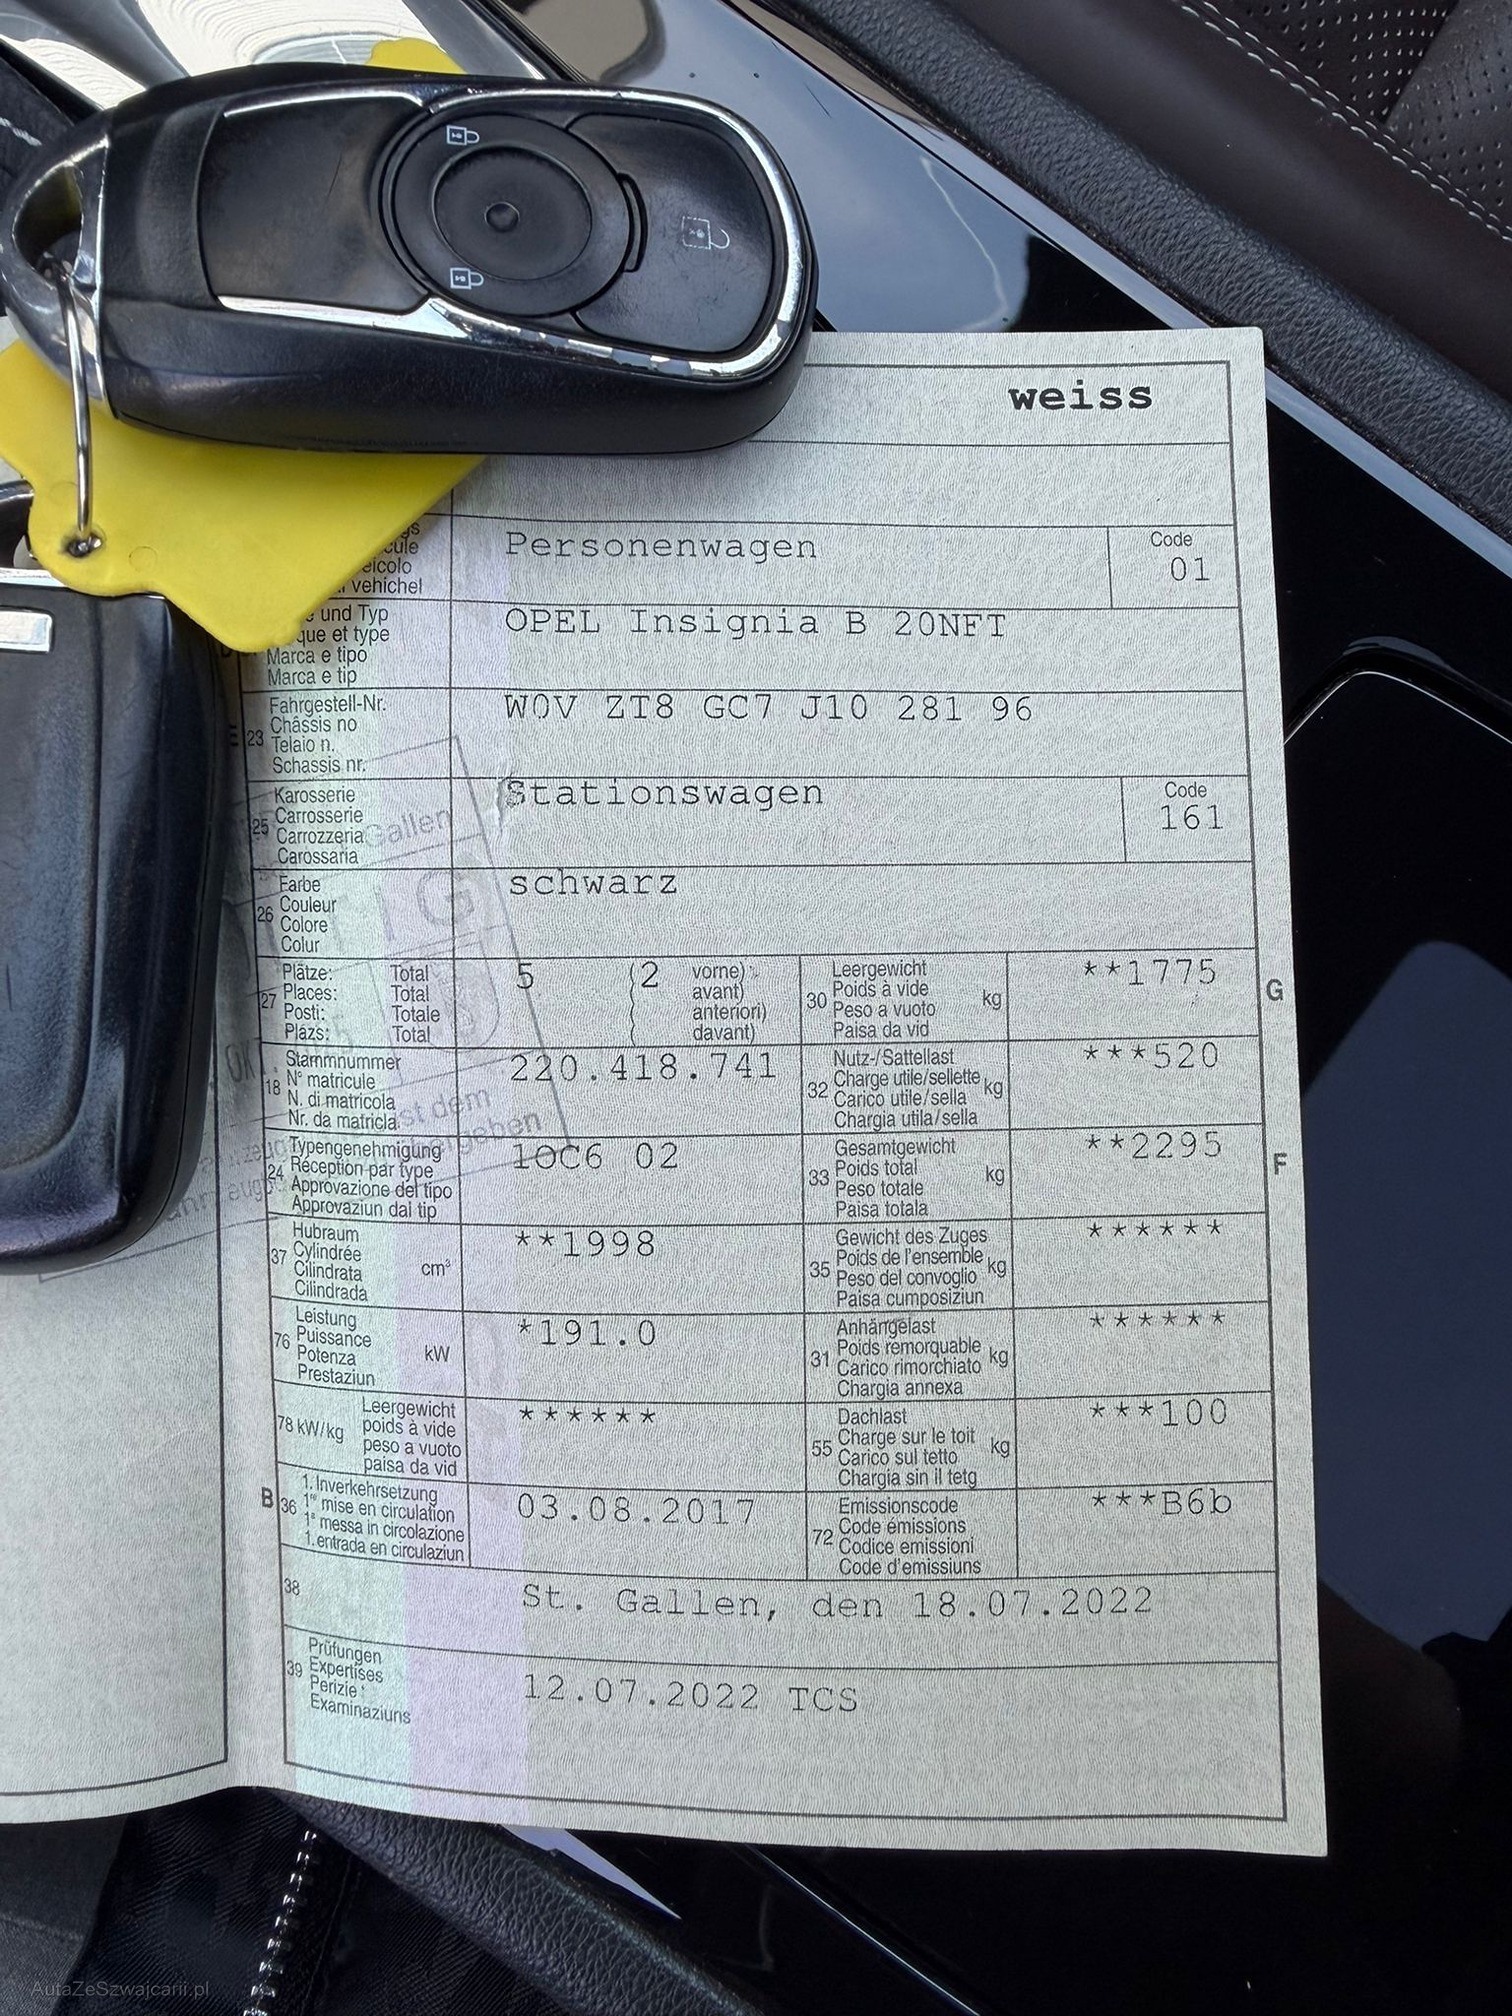 weiss
vehichel
Personenwagen
Code
01
und Typ
que et type
Marca e tipo
Marca e tip
OPEL Insignia B 20NFT
23
Fahrgestell-Nr.
Châssis no
Telaio n.
Schassis nr.
W0V ZT8 GC7 J10 281 96
25
Karosserie
Carrosserie
Carrozzeria
Carossaria
Stationswagen
Code
161
26
Farbe
Couleur
Colore
Colur
schwarz
27
Plätze: Total
Places: Total
Posti: Totale
Plazs: Total
5 (2 vorne)
avant)
anteriori)
davant)
30
Leergewicht
Poids à vide
Peso a vuoto
Paisa da vid
kg
**1775
G
18
Stammnummer
N° matricule
N. di matricola
Nr. da matricla
220.418.741
32
Nutz-/Sattellast
Charge utile/sellette
Carico utile/sella
Chargia utila/sella
kg
***520
24
Typengenehmigung
Réception par type
Approvazione del tipo
Approvaziun dal tip
1OC6 02
33
Gesamtgewicht
Poids total
Peso totale
Paisa totala
kg
**2295
F
37
Hubraum
Cylindrée
Cilindrata
Cilindrada
cm³
**1998
35
Gewicht des Zuges
Poids de l'ensemble
Peso del convoglio
Paisa cumposiziun
kg
******
76
Leistung
Puissance
Potenza
Prestaziun
kW
*191.0
31
Anhängelast
Poids remorquable
Carico rimorchiato
Chargia annexa
kg
******
78 kW/kg
Leergewicht
poids à vide
peso a vuoto
paisa da vid
******
55
Dachlast
Charge sur le toit
Carico sul tetto
Chargia sin il tetg
kg
***100
B
36
1. Inverkehrsetzung
1re mise en circulation
1a messa in circolazione
1. entrada en circulaziun
03.08.2017
72
Emissionscode
Code émissions
Codice emissioni
Code d'emissiuns
***B6b
38
St. Gallen, den 18.07.2022
39
Prüfungen
Expertises
Perizie
Examinaziuns
12.07.2022 TCS
AutaZeSzwajcarii.pl